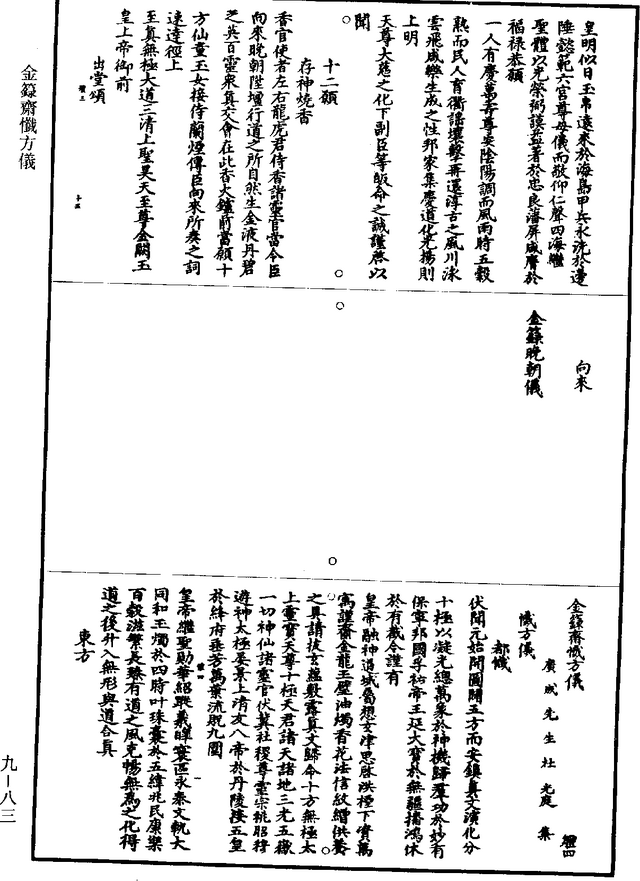 皇明似日玉帛遠來於海島甲兵永洗於邊
陲懿範六宮尊母儀而敬仰仁聲四海繼
聖體以光榮弼諧並著於忠良藩屏咸膺於
福祿恭願
一人有慶萬壽尊安陰陽調而風雨時五穀
熟而民人育衢謠壤擊再還淳古之風川泳
雲飛咸樂生成之性邦家集慶道化光揚則
上明
天尊大慈之化下副臣等皈命之誠謹啓以
聞
十二願
存神燒香
香官使者左右龍虎君侍香諸靈官當令臣
向來晚朝陞壇行道之所自然生金液丹碧
芝英百靈衆真交會在此香火鑪前當願十
方仙童玉女接侍蘭煙傳臣向來所奏之詞
速達徑上
至真無極大道三清上聖昊天至尊金闕玉
皇上帝御前
出堂頌
向來
金籙晚朝儀
金籙齋懺方儀
廣成先生杜光庭集
懺方儀
都懺
伏聞元始開圖睹五方而安鎮真文演化分
十極以凝光總萬象於神機歸羣功於妙有
保寧邦國孚祐帝王延大寶於無疆播鴻休
於有截今謹有
皇帝融神道域屬想玄津思啓洪極下濟萬
寓謹齎金龍玉璧油燭香花法信紋繒供養
之具請披玄蘊敷露真文歸命十方無極太
上靈寶天尊十極天君諸天諸地三光五嶽
一切神仙諸靈官伏冀社稷尊靈宗祧昭穆
遊神太極晏景上清友八帝於丹陵接五皇
於絳府垂芳萬葉流貺九圍
皇帝繼聖勛華紹聦羲暤寰區永泰文軌大
同和玉燭於四時叶珠囊於五緯兆民康樂
百穀滋繁長臻有道之風克暢無爲之化得
道之後升入無形與道合真
東方
金籙齋懺方儀
九－八三